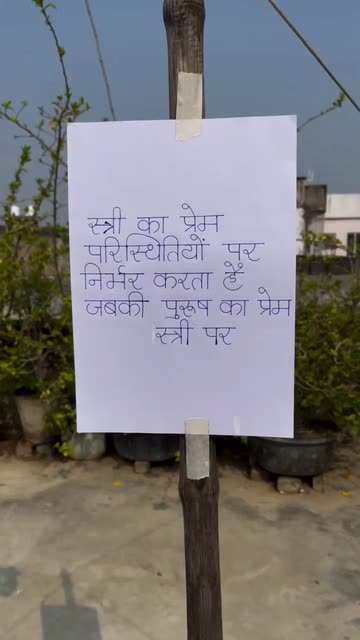 स्त्री का प्रेम
परिस्थितियों पर
निर्भर करता है
जबकी पुरूष का प्रेम
स्त्री पर